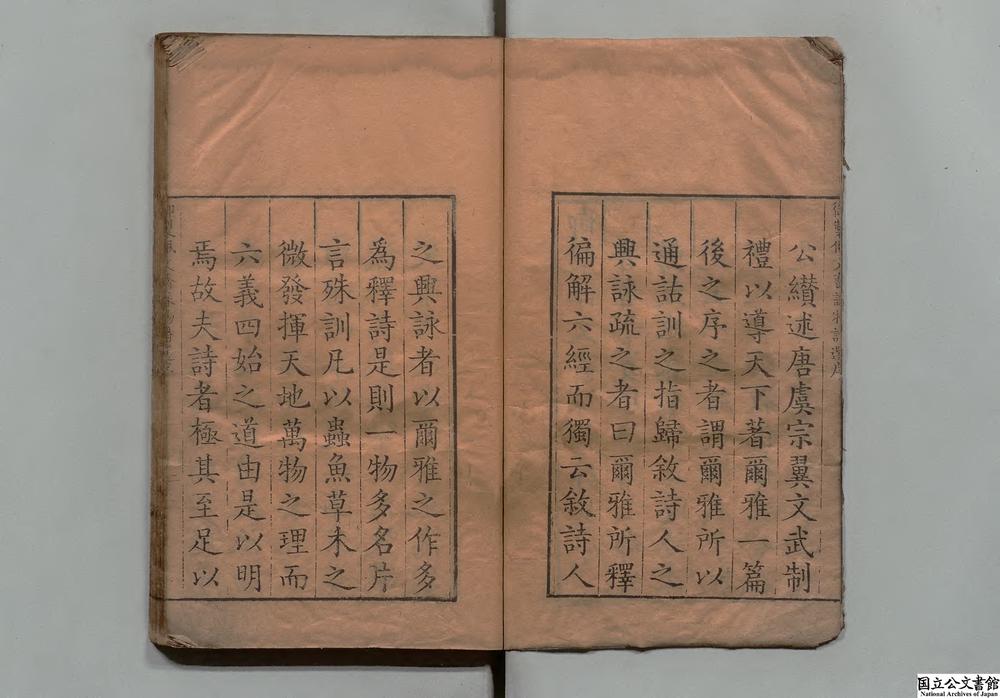 公纘述唐虞宗翼文武制
禮以導天下著爾雅一篇
後之序之者謂爾雅所以
通詁訓之指歸敘詩人之
興詠疏之者曰爾雅所釋
徧解六經而獨云敘詩人
之興詠者以爾雅之作多
為釋詩是則一物多名片
言殊訓凡以蟲魚草木之
微發揮天地萬物之理而
六義四始之道由是以明
焉故夫詩者極其至足以
国立公文書館
National Archives of Japan